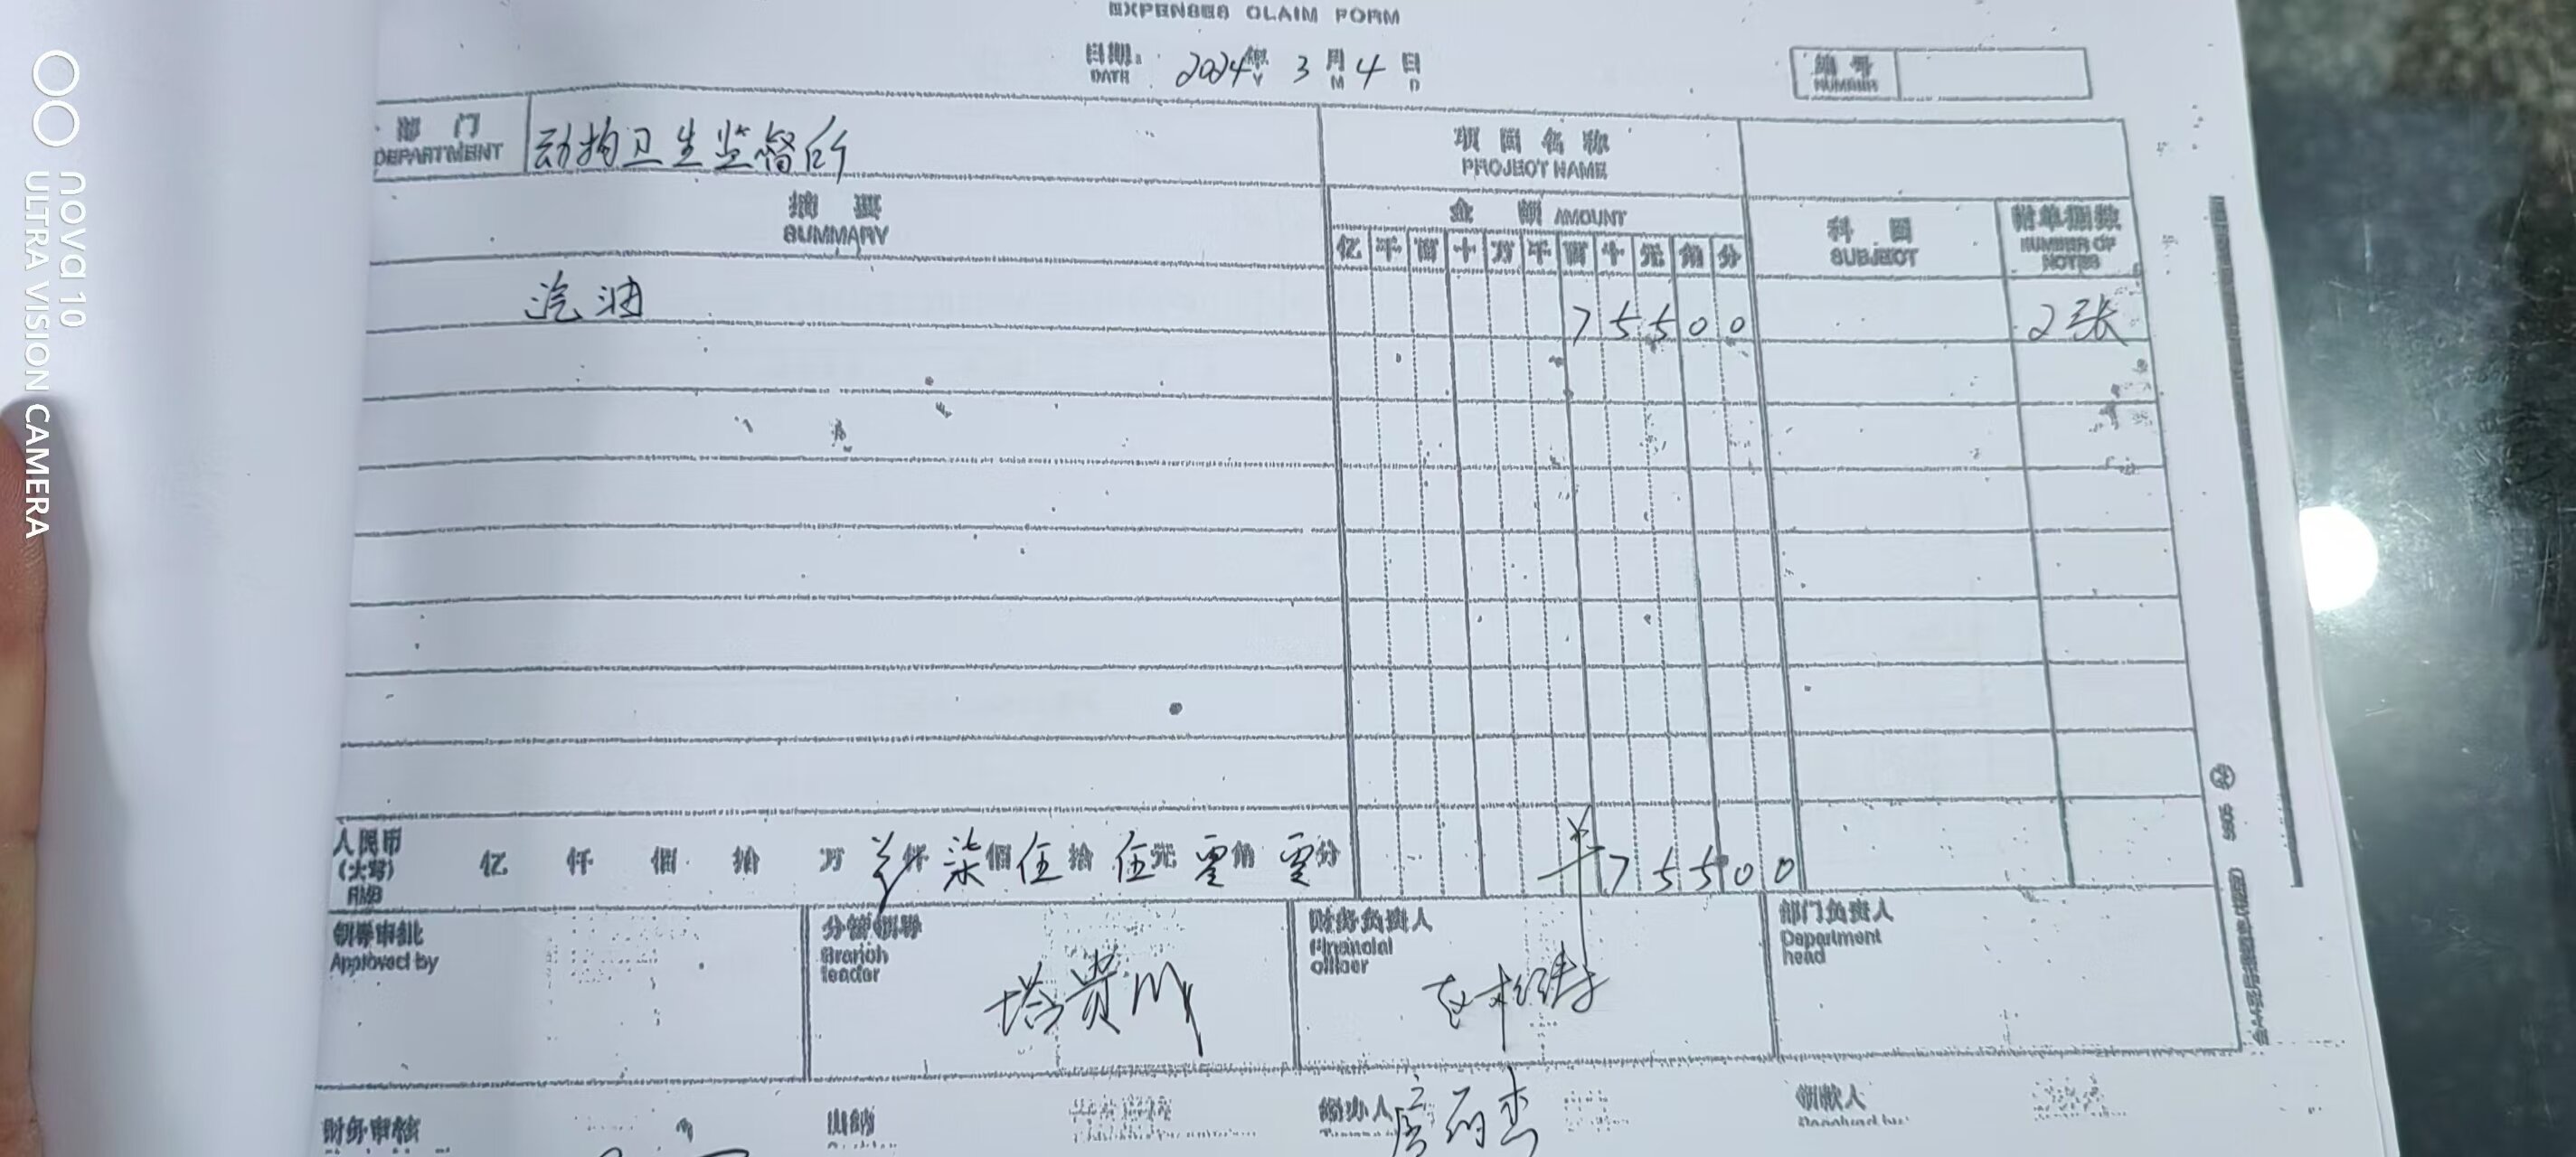 EXPENSES CLAIM FORM
日期: 2024年 3 月 4 日
DATE Y M D
编号
NUMBER
部门
DEPARTMENT
动物卫生监督所
项目名称
PROJECT NAME
摘要
SUMMARY
金额 AMOUNT
亿 千 百 十 万 千 百 十 元 角 分
科目
SUBJECT
附单据数
NUMBER OF
NOTES
汽油 7 5 5 0 0 2张
人民币
(大写)
RMB
亿 仟 佰 拾 万 仟 柒佰 伍拾 伍元 零角 零分 ¥ 7 5 5 0 0
领导审批
Approved by
分管领导
Branch
leader
塔贵
财务负责人
Financial
officer
部门负责人
Department
head
财务审核
出纳
经办人
领款人
Received by
nova 10
ULTRA VISION CAMERA